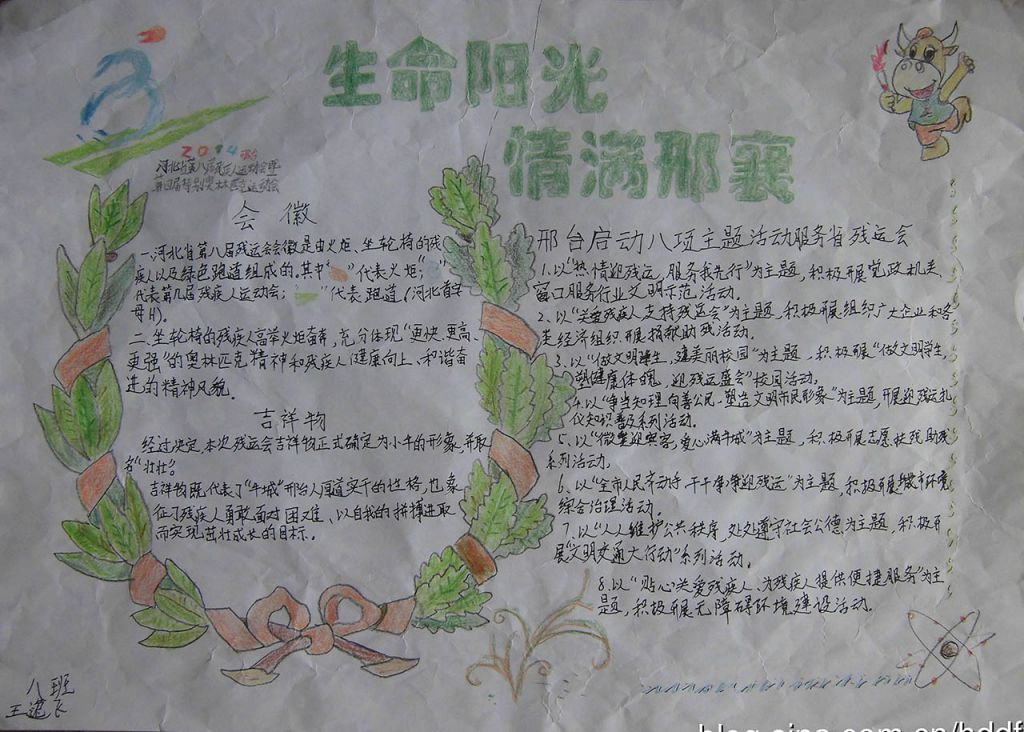 生命阳光
情满邢襄
2014 邢台
河北省第八届残疾人运动会暨
第四届特别奥林匹克运动会
会徽
一、河北省第八届残运会会徽是由火炬、坐轮椅的残
疾人以及绿色跑道组成的，其中“ ”代表火炬；“ ”
代表第八届残疾人运动会；“ ”代表跑道（河北首字
母H）。
二、坐轮椅的残疾人高举火炬奋奔，充分体现“更快、更高、
更强”的奥林匹克精神和残疾人健康向上、和谐奋
进的精神风貌。
吉祥物
经过决定，本次残运会吉祥物正式确定为小牛的形象，并取
名“壮壮”。
吉祥物既代表了“牛城”邢台人间道实干的性格，也象
征了残疾人勇敢面对困难、以自我的拼搏进取
而实现茁壮成长的目标。
邢台启动八项主题活动服务省残运会
1.以“热情迎残运，服务我先行”为主题，积极开展党政机关、
窗口服务行业文明示范活动。
2.以“关爱残疾人 支持残运会”为主题，积极开展组织广大企业和各
类经济组织开展捐献助残活动。
3.以“做文明学生，建美丽校园”为主题，积极开展“做文明学生，
塑健康体魄，迎残运盛会”校园活动。
4.以“争当知理向善公民，塑造文明市民形象”为主题，开展迎残运礼
仪知识普及系列活动。
5、以“微笑迎宾客，爱心满牛城”为主题，积极开展志愿扶残助残
系列活动。
6、以“全市人民齐动手，干干净净迎残运”为主题，积极开展城市环境
综合治理活动。
7、以“人人维护公共秩序，处处遵守社会公德”为主题，积极开
展“文明交通大行动”系列活动。
8.以“贴心关爱残疾人、为残疾人提供便捷服务”为主
题，积极开展无障碍环境建设活动。
八班
王 飞
blog.sina.com.cn/hddf